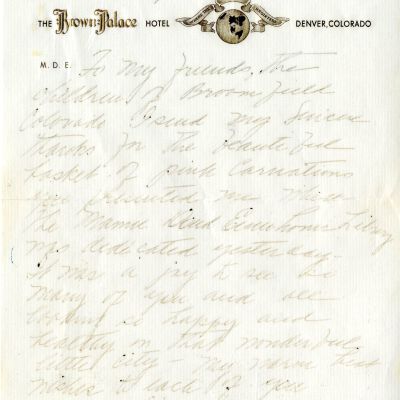 THE Brown Palace HOTEL DENVER, COLORADO
M. D. E. To My friends, the
children of Broomfield
Colorado I send my Sincere
thanks for the beautiful
basket of pink Carnations
you presented me when
The Mamie Doud Eisenhower Library
was dedicated yesterday—
it was a joy to see so
many of you and all
looking so happy and
healthy in that wonderful
little city — My warm best
wishes to each of you